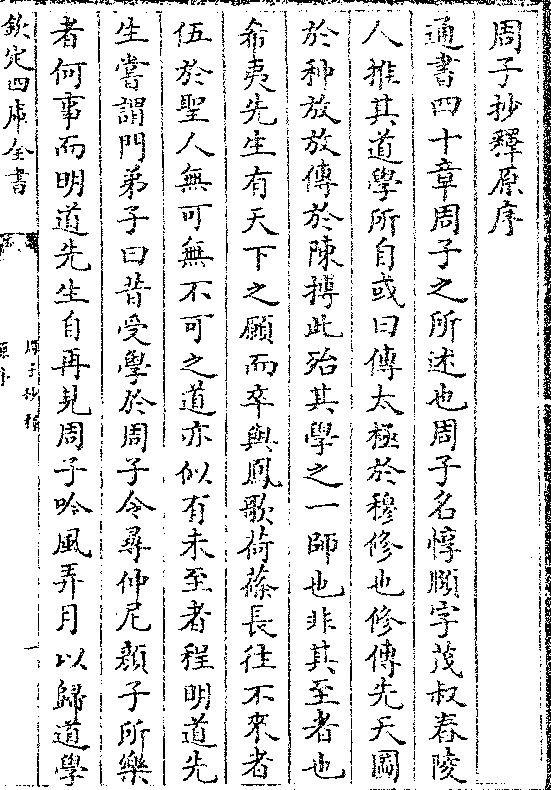 周子抄釋原序
通書四十章周子之所述也周子名惇頤字茂叔舂陵
人推其道學所自或曰傳太極於穆修也修傳先天圖
於种放放傳於陳摶此殆其學之一師也非其至者也
希夷先生有天下之願而卒與鳳歌荷蓧長往不來者
伍於聖人無可無不可之道亦似有未至者程明道先
生嘗謂門弟子曰昔受學於周子令尋仲尼顔子所樂
者何事而明道先生自再見周子吟風弄月以歸道學
欽定四庫全書
周子抄釋
原序
一